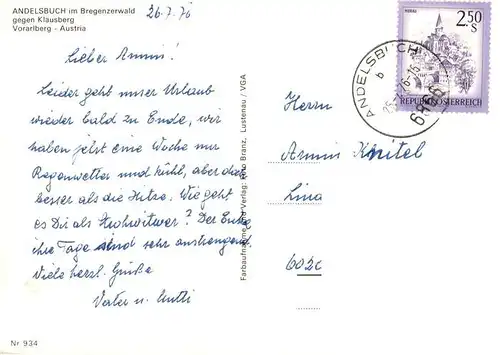 ANDELSBUCH im Bregenzerwald
gegen Klausberg
Vorarlberg - Austria
26.7.76
Lieber Armin!
Leider geht unser Urlaub
wieder bald zu Ende, wir
haben jetzt eine Woche nur
Regenwetter und kühl, aber das
besser als die Hitze. Wie geht
es Dir als Strohwitwer? Der
ihre Tage sind sehr anstrengend
Viele herzl. Grüße
Vater u. Mutti
Nr 934
Farbaufnahme und Verlag: Branz, Lustenau / VGA
MURAU
2.50
S
REPUBLIK ÖSTERREICH
ANDELSBUCH
b
6866
Herrn
Armin Knitel
Linz
6020